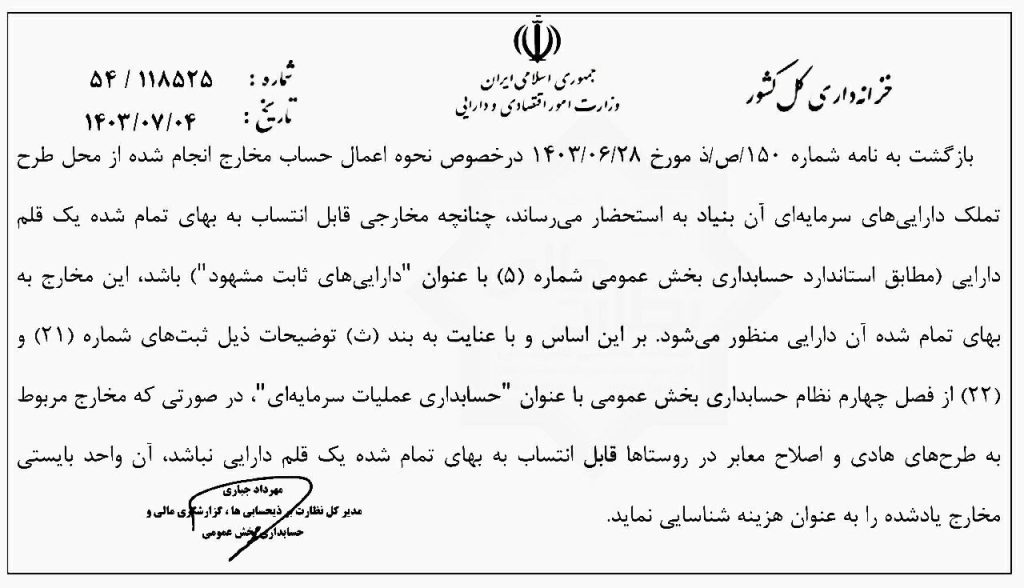 خزانه‌داری کل کشور
جمهوری اسلامی ایران
وزارت امور اقتصادی و دارایی
شماره : ۵۴ / ۱۱۸۵۲۵
تاریخ : ۱۴۰۳/۰۷/۰۴
بازگشت به نامه شماره ۱۵۰/ص/ذ مورخ ۱۴۰۳/۰۶/۲۸ درخصوص نحوه اعمال حساب مخارج انجام شده از محل طرح
تملک دارایی‌های سرمایه‌ای آن بنیاد به استحضار می‌رساند، چنانچه مخارجی قابل انتساب به بهای تمام شده یک قلم
دارایی (مطابق استاندارد حسابداری بخش عمومی شماره (۵) با عنوان "دارایی‌های ثابت مشهود") باشد، این مخارج به
بهای تمام شده آن دارایی منظور می‌شود. بر این اساس و با عنایت به بند (ث) توضیحات ذیل ثبت‌های شماره (۲۱) و
(۲۲) از فصل چهارم نظام حسابداری بخش عمومی با عنوان "حسابداری عملیات سرمایه‌ای"، در صورتی که مخارج مربوط
به طرح‌های هادی و اصلاح معابر در روستاها قابل انتساب به بهای تمام شده یک قلم دارایی نباشد، آن واحد بایستی
مخارج یادشده را به عنوان هزینه شناسایی نماید.
مهرداد جباری
مدیر کل نظارت بر ذیحسابی ها ، گزارشگری مالی و
حسابداری بخش عمومی